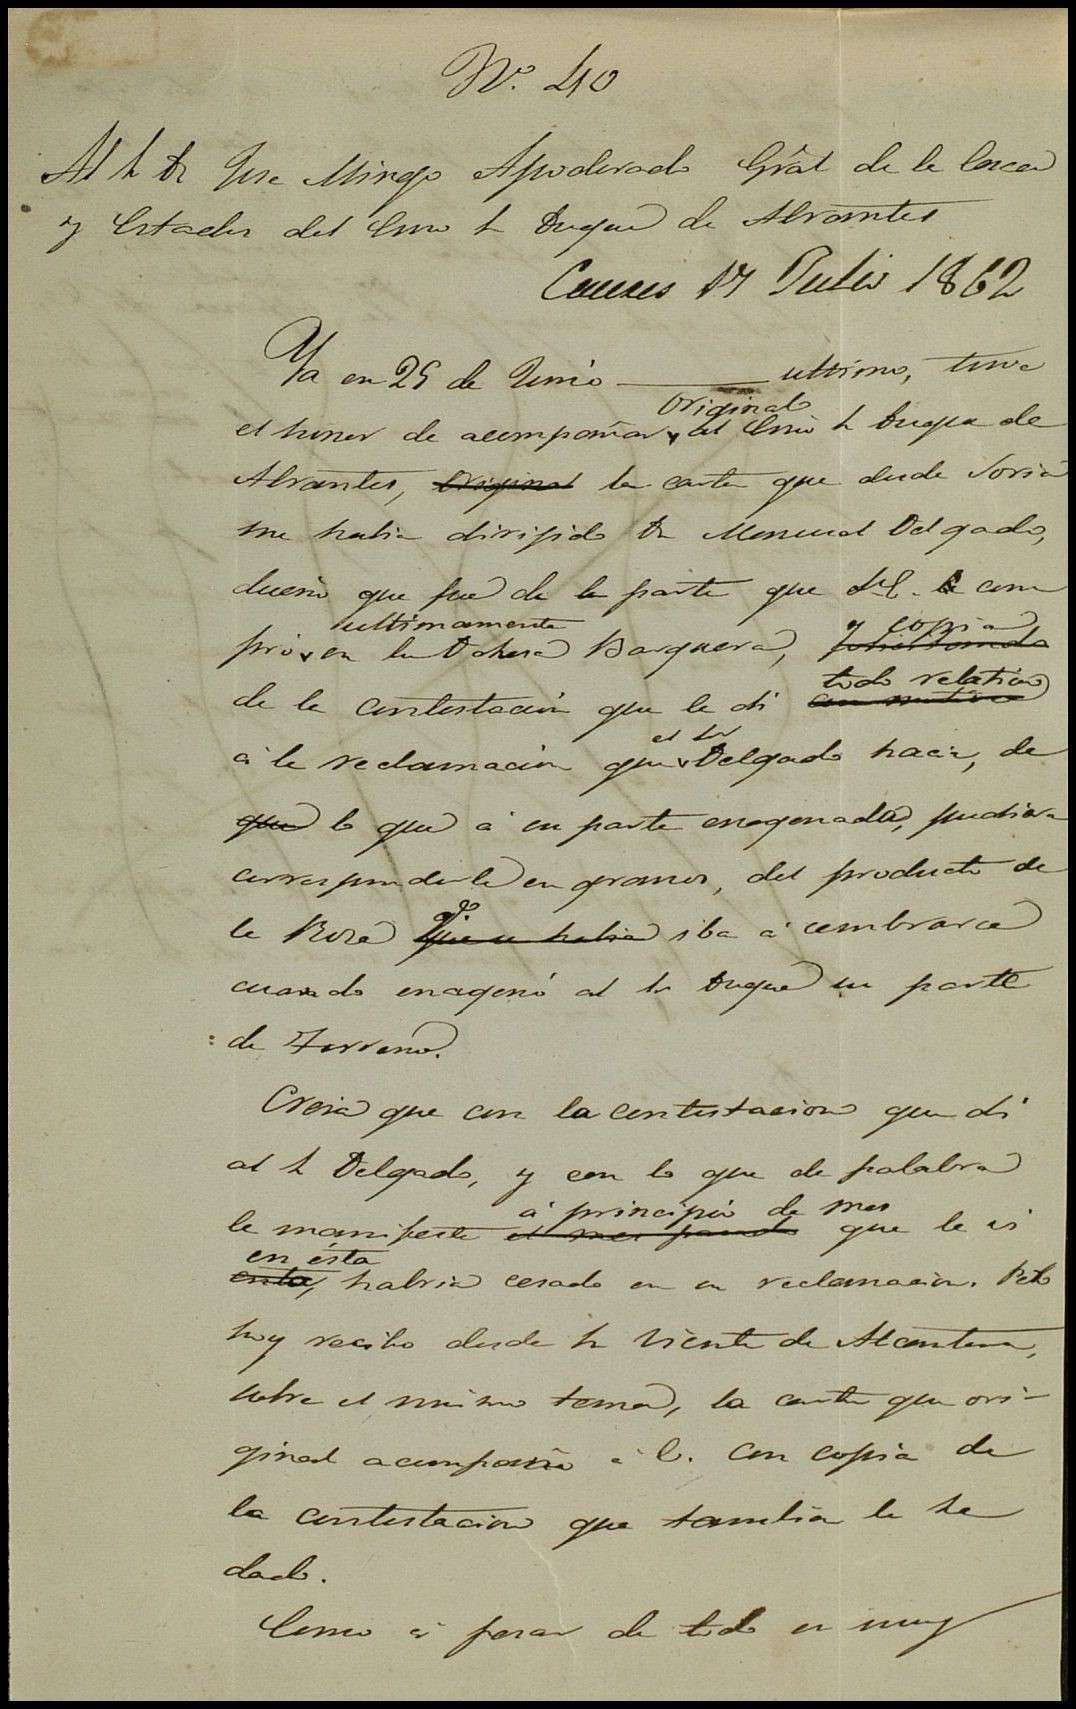 Nº. 40
Al Sr Dn Jose Mingo Apoderado Gral de la Casa
y Estados del Exmo Sr Duque de Abrantes
Caceres 17 Julio 1862
Ya en 25 de Junio ultimo, tuve
original
el honor de acompañar al Exmo Sr Duque de
Abrantes, original la carta que desde Soria
me habia dirijido Dn Manuel Delgado,
dueño que fue de la parte que S.E. com
ultimamente y copia
pró en la Dehesa Barquera,
todo relativo
de la contestacion que le di con motivo
el Sor
á la reclamacion que Delgado hacia, de
que lo que á su parte enagenada, pudiera
corresponderle en granos, del producto de
qe.
la Roza que se habia iba á sembrarse
cuando enagenó al Sr Duque su parte
de Terreno.
Creia que con la contestacion que di
al Sr Delgado, y con lo que de palabra
á principio de mes
le manifesté el mes pasado que le vi
en ésta
, habria cesado en su reclamacion. Pero
hoy recibo desde Sn Vicente de Alcantara,
sobre el mismo tema, la carta que ori-
ginal acompaño á E. con copia de
la contestacion que tambien le he
dado.
Como á pesar de todo es muy